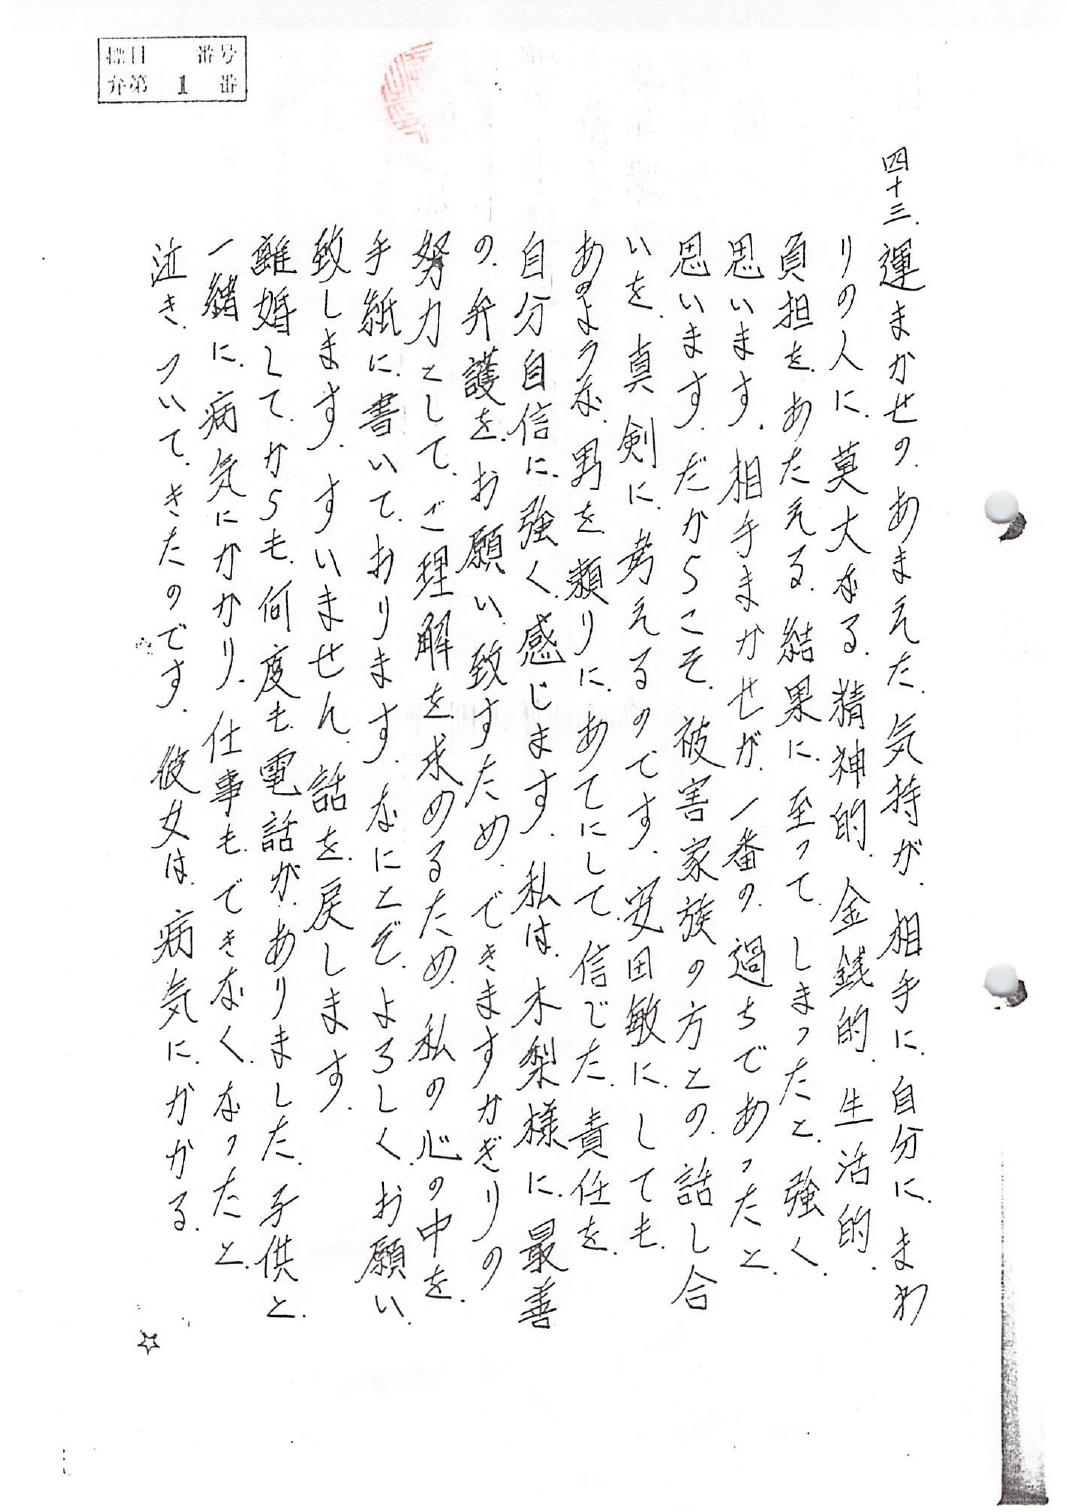 標目　番号
弁第　1　番
四十三、運まかせの、あまえた、気持が、相手に、自分に、まわ
りの人に、莫大なる、精神的、金銭的、生活的、
負担を、あたえる、結果に、至って、しまったと、強く、
思います。相手まかせが、一番の、過ちであったと、
思います、だからこそ、被害家族の方との、話し合
いを、真剣に、考えるのです、安田敏に、しても、
あのような、男を、頼りに、あてにして、信じた、責任を、
自分自信に、強く、感じます、私は、木梨様に、最善
の、弁護を、お願い、致すため、できますかぎりの
努力として、ご理解を、求めるため、私の心の中を、
手紙に、書いて、おります、なにとぞ、よろしく、お願い、
致します、すいません、話を、戻します、
離婚して、からも、何度も、電話が、ありました、子供と、
一緒に、病気にかかり、仕事も、できなく、なったと、
泣き、ついて、きたのです、彼女は、病気に、かかる、
☆